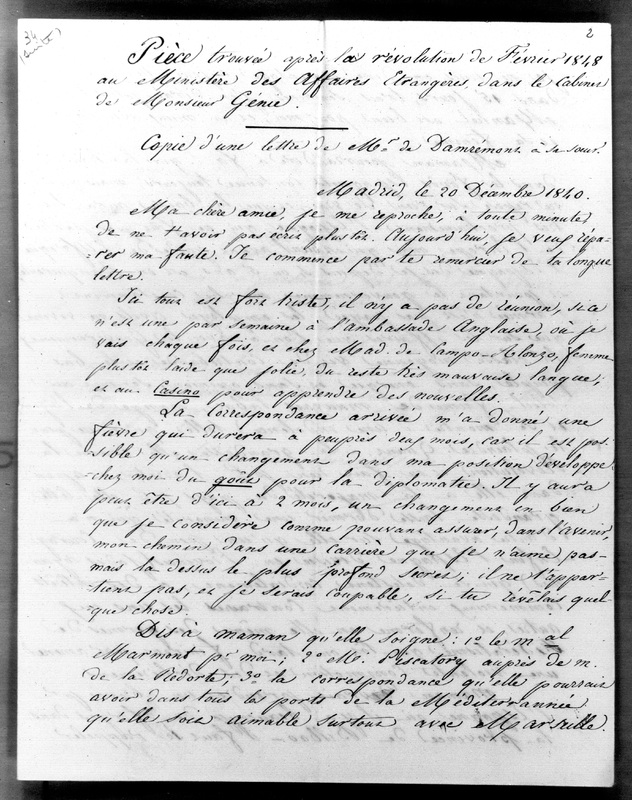 34
(suite)
2
Pièce trouvée après la révolution de Février 1848
au Ministère des Affaires Etrangères, dans le Cabinet
de Monsieur Génie.
Copie d'une lettre de Mr. de Damrémont à sa sœur.
Madrid, le 20 Décembre 1840.
Ma chère amie, je me reproche, à toute minute,
de ne t'avoir pas écrit plustôt. Aujourd'hui, je veux répa-
-rer ma faute. Je commence par te remercier de ta longue
lettre.
Ici tout est fort triste, il n'y a pas de réunion, si ce
n'est une par semaine à l'ambassade Anglaise, où je
vais chaque fois, et chez Mad. de Campo-Alonzo, femme
plustôt laide que jolie, du reste très mauvaise langue;
et au Casino pour apprendre des nouvelles.
La Correspondance arrivée m'a donné une
fièvre qui durera à peuprès deux mois, car il est pos-
-sible qu'un changement dans ma position développe
chez moi du goût pour la diplomatie. Il y aura
peut être d'ici à 2 mois, un changement en bien
que je considère comme pouvant assurer, dans l'avenir,
mon chemin dans une carrière que je n'aime pas-
mais là dessus le plus profond secret; il ne t'appar-
-tient pas, et je serais coupable, si tu révélais quel-
-que chose.
Dis à maman qu'elle soigne: 1º le mal
Marmont pr moi; 2º Mr. Piscatory auprès de m.
de la Redorte; 3º la correspondance qu'elle pourrait
avoir dans tous les ports de la Méditerrannée
qu'elle soit aimable surtout avec Marseille.